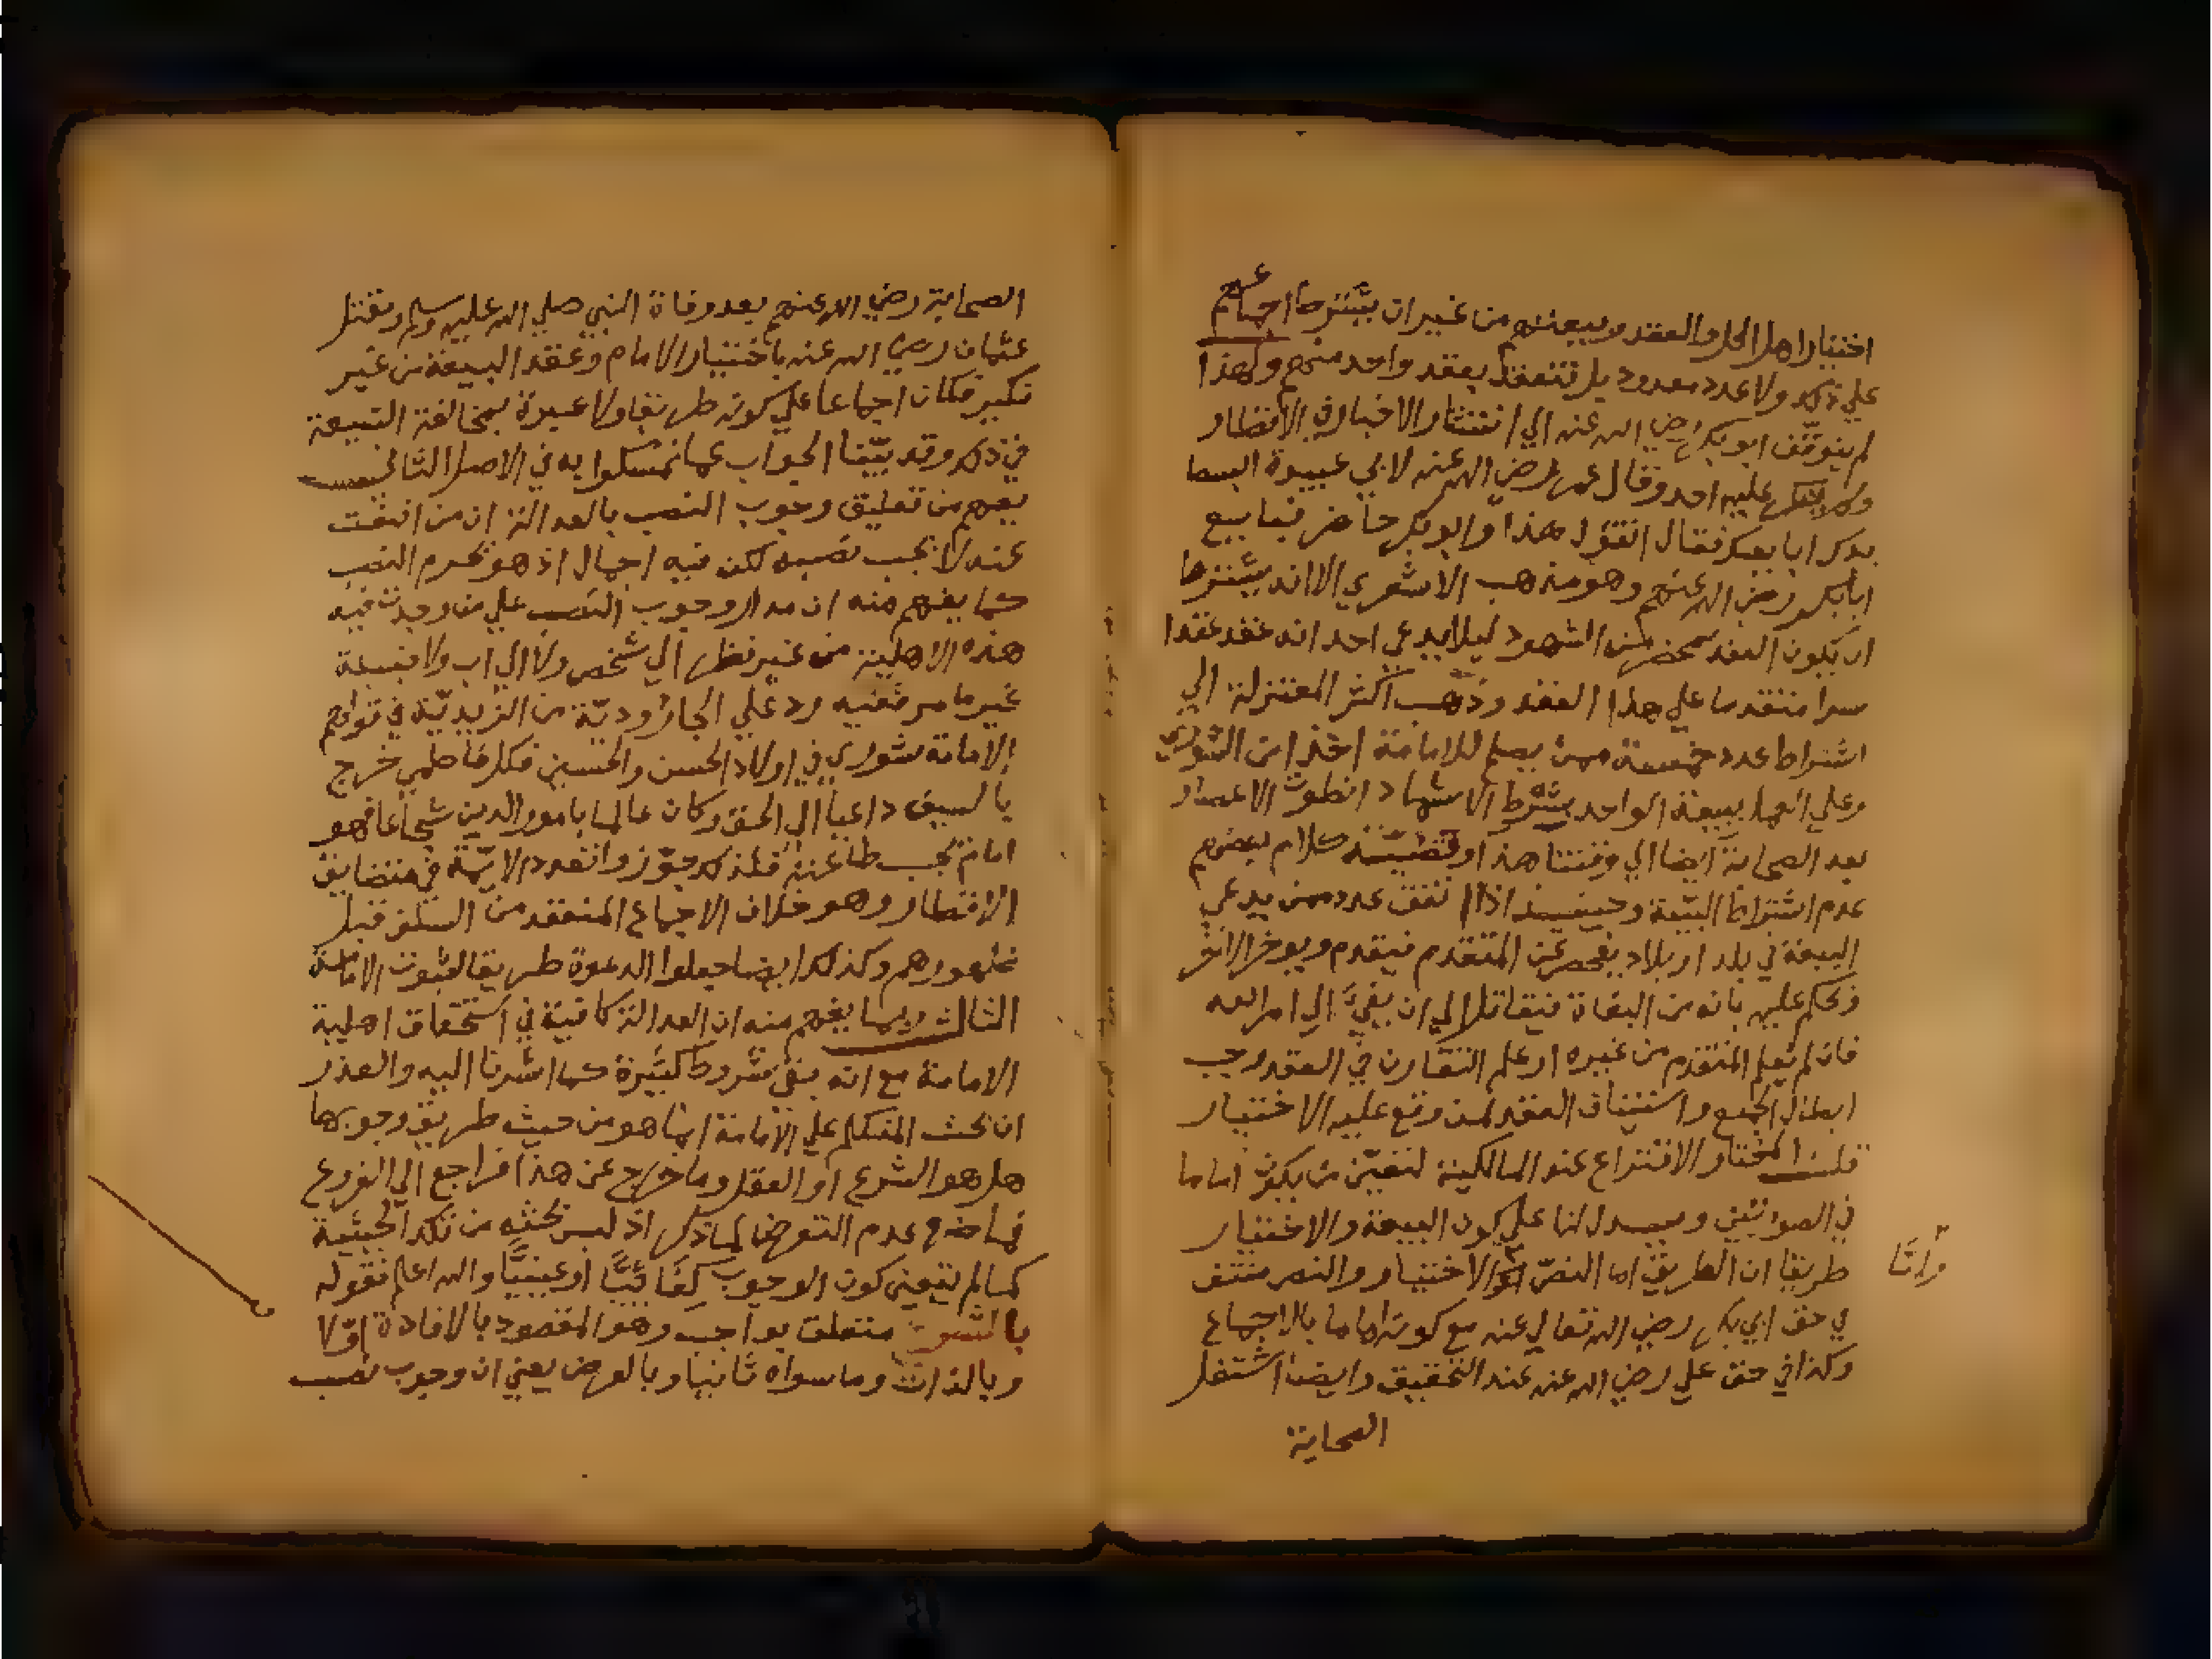 اختيار اهل الحل والعقد وبيعتهم من غير ان يشترط اجماعهم
علي ذلك ولا عدد معدود بل تنعقد بعقد واحد منهم ولهذا
لم يتوقف ابو بكر رضي الله عنه الي انتشار الاخبار في الاقطار
ولم ينكر عليه احد وقال عمر رضي الله عنه لابي عبيدة ابسط
يدك ابايعك فقال اتقول هذا وابو بكر حاضر فبايع
ابا بكر رضي الله عنهم وهو مذهب الاشعري الا انه يشترط
ان يكون العقد بمحضر من الشهود ليلا يدعي احد انه عقد عقدا
سرا متقدما علي هذا العقد وذهب اكثر المعتزلة الي
اشتراط عدد خمسة ممن يصلح للامامة اخذا من الشوري
وعلي انها ببيعة الواحد بشرط الاشهاد انطوت الاعصار
بعد الصحابة ايضا الي وقتنا هذا وقضية كلام بعضهم
عدم اشتراط البينة وحينيذ اذا اتفق عدد ممن يدعي
البيعة في بلد او بلاد يفحص عن المتقدم فيقدم ويوخر الاخر
ونحكم عليه بانه من البغاة فيقاتل الي ان يفيء الي امر الله
فان لم يعلم المتقدم من غيره او علم التقارن في العقد وجب
ابطال الجميع واستيناف العقد لمن وقع عليه الاختيار
قلت المختار الاقتراع عند المالكية لتعين من يكون اماما
في الصورتين ويدل لنا علي كون البيعة والاختيار
طريقا ان الطريق اما النص او الاختيار والنص منتف
في حق ابي بكر رضي الله تعالي عنه مع كونه اماما بالاجماع
وكذا في حق علي رضي الله عنه عند التحقيق وايضا اشتغل
الصحابة
وايضا
الصحابة رضي الله عنهم بعد وفاة النبي صلي الله عليه وسلم وبقتل
عثمان رضي الله عنه باختيار الامام وعقد البيعة من غير
نكير فكان اجماعا علي كونه طريقا ولا عبرة بمخالفة الشيعة
في ذلك وقد بينا الجواب عما تمسكوا به في الاصل الثاني
يفهم من تعليق وجوب النصب بالعدالة ان من انتفت
عنه لا يجب نصبه لكن فيه اجمال اذ هو محرم النصب
كما يفهم منه ان مدار وجوب النصب علي من وجدت فيه
هذه الاهلية من غير نظر الي شخص ولا الي اب ولا قبيلة
غير ما مر ففيه رد علي الجارودية من الزيدية في قولهم
الامامة شوري في اولاد الحسن والحسين فكل فاطمي خرج
بالسيف داعيا الي الحق وكان عالما بامور الدين شجاعا فهو
امام تجب طاعته فلذلك جوزوا تعدد الايمة في متضايق
الاقطار وهو خلاف الاجماع المنعقد من السلف قبل
ظهورهم وكذلك ايضا جعلوا الدعوة طريقا لثبوت الامامة
الثالث ربما يفهم منه ان العدالة كافية في استحقاق اهلية
الامامة مع انه بقي شروط كثيرة كما اشرنا اليه والعذر
ان بحث المتكلم علي الامامة انما هو من حيث طريق وجوبها
هل هو الشرع او العقل وما خرج عن هذا فراجع الي الفروع
فما ضره عدم التعرض لما ذكر اذ ليس بحثه من تلك الحيثية
كما لم يتعين كون الوجوب كفائيا او عينيا والله اعلم فقوله
بالشرع متعلق بواجب وهو المقصود بالافادة اولا
وبالذات وما سواه ثانيا وبالعرض يعني ان وجوب نصب